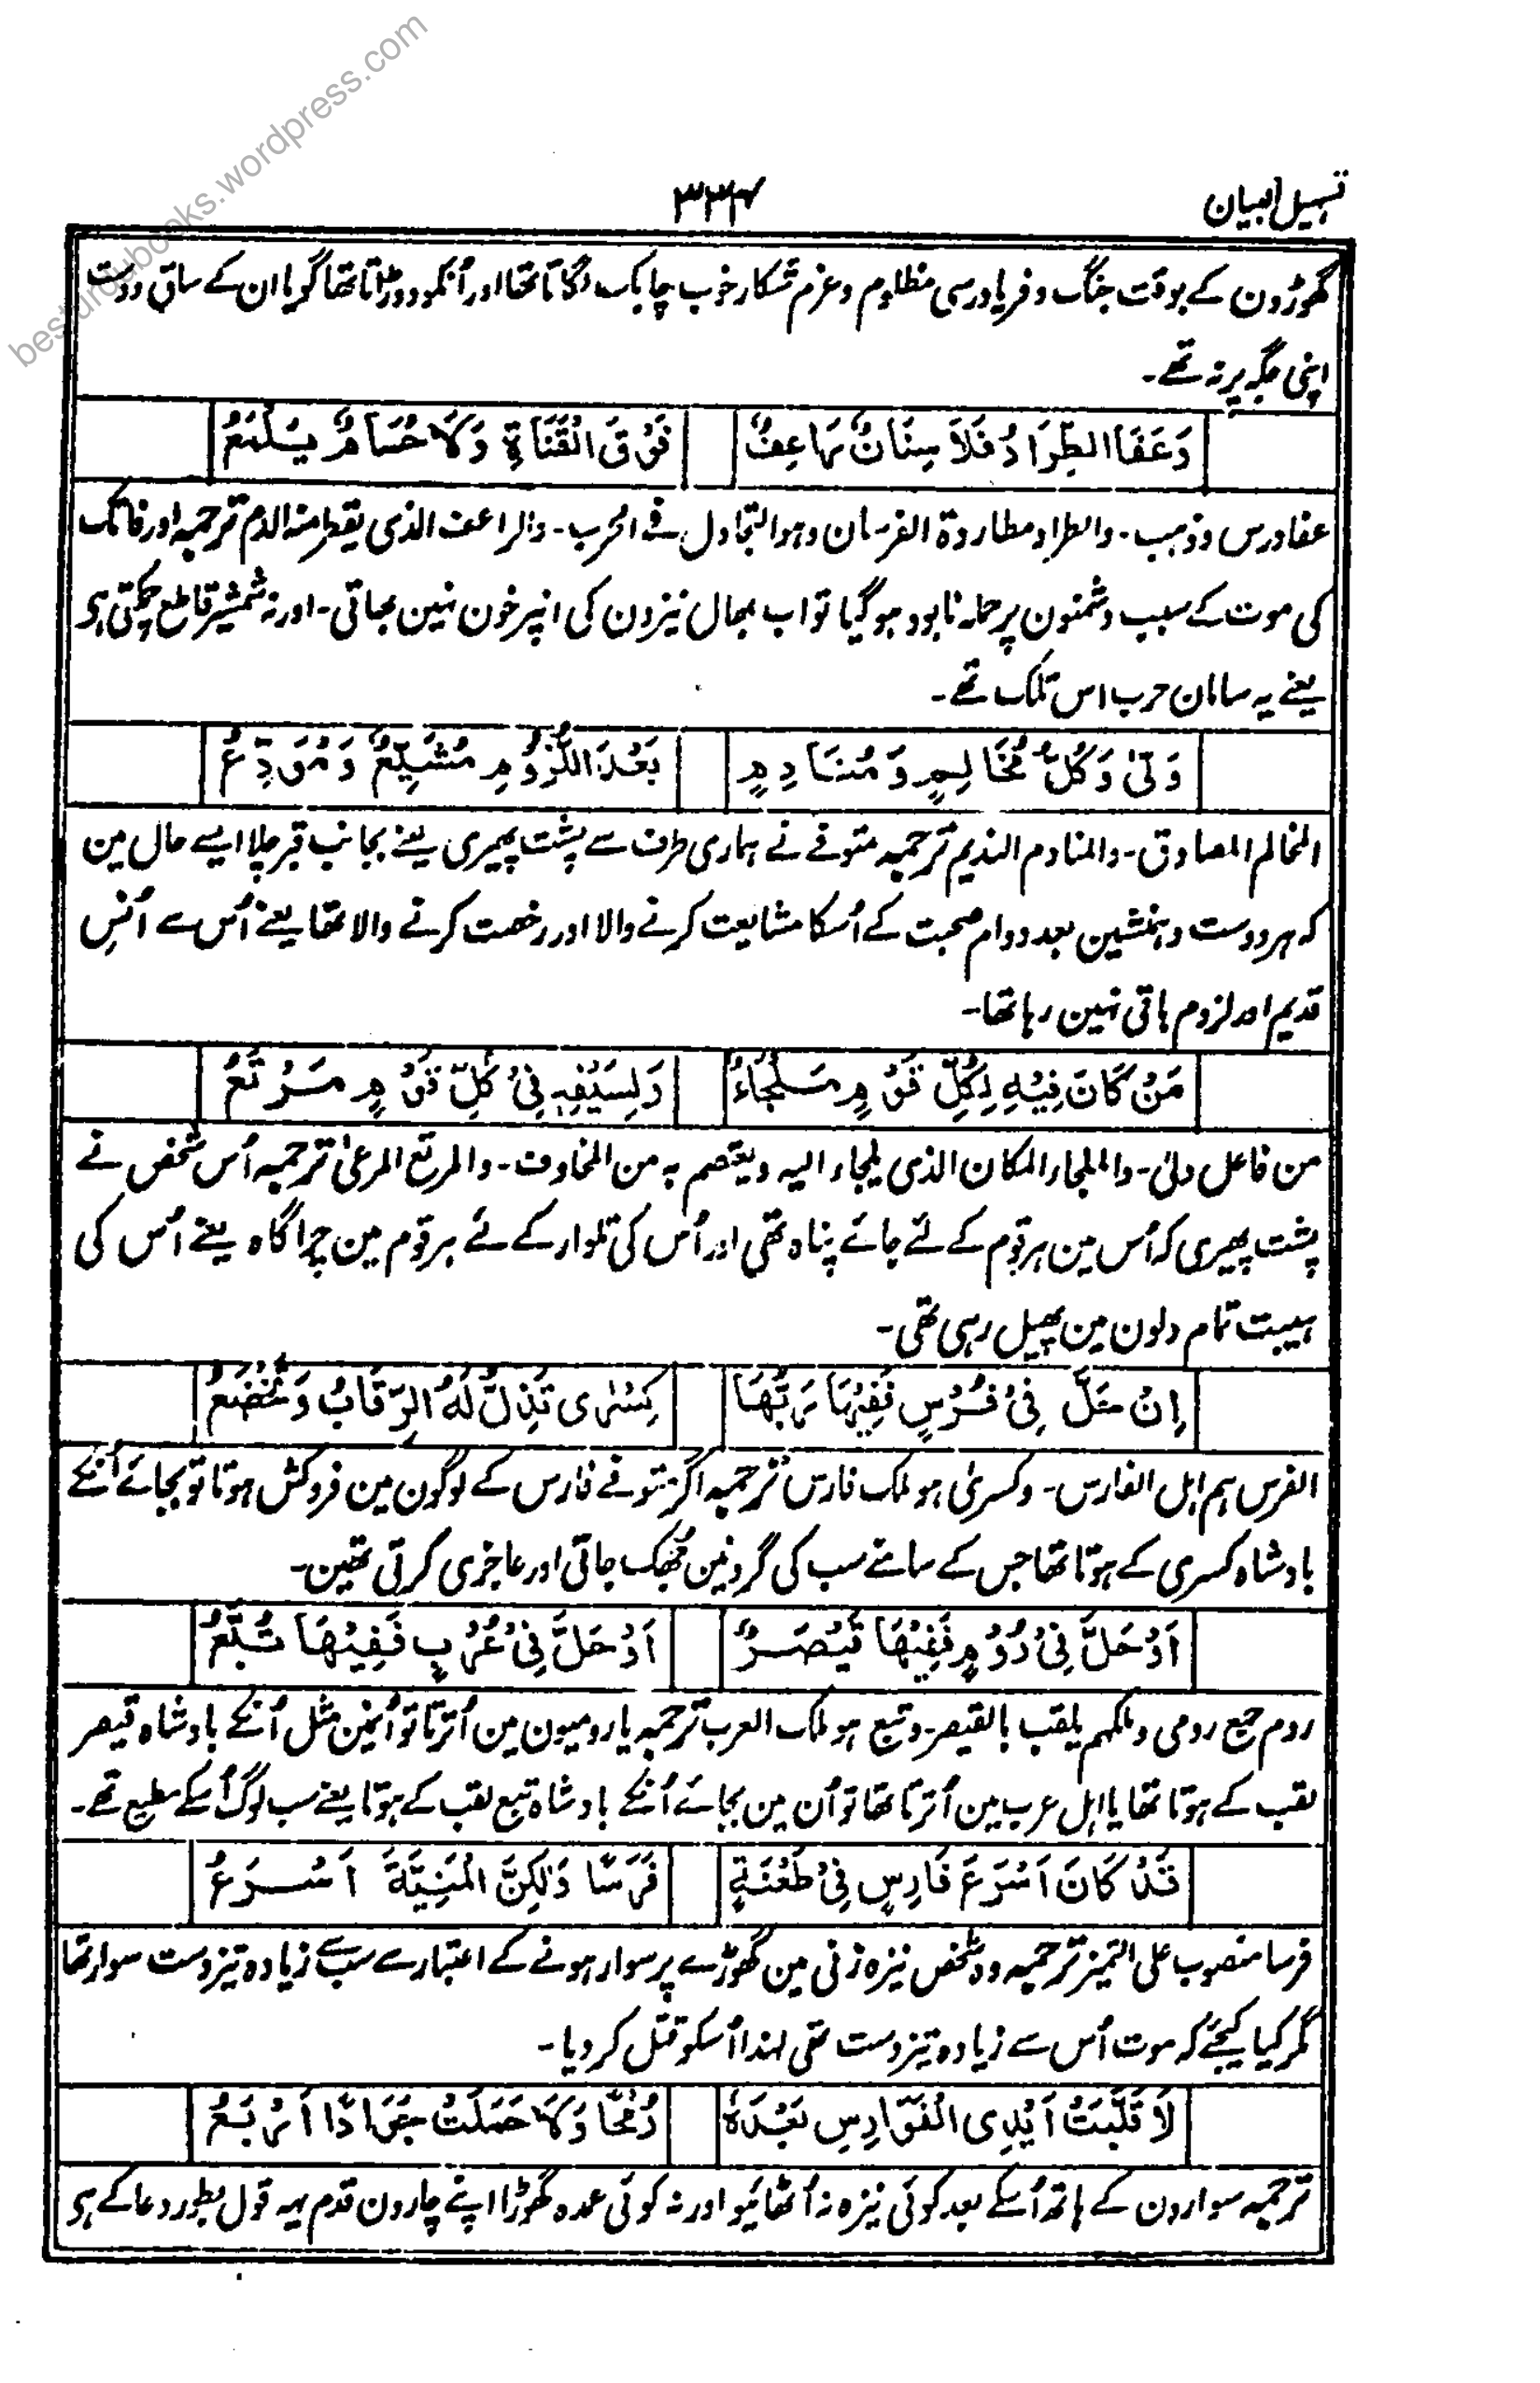 besturdubooks.wordpress.com
تسہیل البیان
۳۳۴
گھوڑون کے بوقت جنگ و فریادرسی مظلوم و عزم شکار خوب چابک لگاتا تھا اور اُنکو دوڑاتا تھا گویا ان کے ساق و دست
اپنی جگہ پر نہ تھے۔
وَعَفَا الطِّرَادُ فَلَا سِنَانٌ رَاعِفٌ فَوْقَ الْقَنَاةِ وَلَا حُسَامٌ يَلْمَعُ
عفا درس و ذہب۔ والطراد مطاردۃ الفرسان وہو التجاول فے الحرب۔ والراعف الذی یقطر منہ الدم ترجمہ اور فاتک
کی موت کے سبب دشمنون پر حملہ نابود ہو گیا تو اب بھال نیزون کی انپر خون نہین بہاتی۔ اور نہ شمشیر قاطع چمکتی ہی
یعنے یہ سامان حرب اس تلک تھے۔
وَلّٰى وَكُلُّ مُخَالِمٍ وَمُنَادِمٍ بَعْدَ اللُّزُوْمِ مُشَيِّعٌ وَمُوَدِّعُ
المخالم المصادق۔ والمنادم الندیم ترجمہ متوفے نے ہماری طرف سے پشت پھیری یعنے بجانب قبر چلا ایسے حال مین
کہ ہر دوست و ہمنشین بعد دوام صحبت کے اُسکا مشایعت کرنے والا اور رخصت کرنے والا تھا یعنے اُس سے اُنس
قدیم اور لزوم باقی نہین رہا تھا۔
مَنْ كَانَ فِيْهِ لِكُلِّ قَوْمٍ مَلْجَاءٌ وَلِسَيْفِهٖ فِيْ كُلِّ قَوْمٍ مَرْتَعُ
من فاعل ولی۔ والملجاء المکان الذی یلجاء الیہ و یعتصم بہ من المخاوف۔ والمرتع المرعیٰ ترجمہ اُس شخص نے
پشت پھیری کہ اُس مین ہر قوم کے لئے جائے پناہ تھی اور اُس کی تلوار کے لئے ہر قوم مین چراگاہ یعنے اُس کی
ہیبت تمام دلون مین پھیل رہی تھی۔
اِنْ حَلَّ فِيْ فُرْسٍ فَفِيْهَا رَبُّهَا كِسْرٰى تَذِلُّ لَهُ الرِّقَابُ وَتَخْضَعُ
الفرس ہم اہل الفارس۔ وکسریٰ ہو ملک فارس ترجمہ اگر متوفے فارس کے لوگون مین فروکش ہوتا تو بجائے اُنکے
بادشاہ کسری کے ہوتا تھا جس کے سامنے سب کی گردنین جھک جاتی اور عاجزی کرتی تھین۔
اَوْ حَلَّ فِيْ رُوْمٍ فَفِيْهَا قَيْصَرٌ اَوْ حَلَّ فِيْ عُرْبٍ فَفِيْهَا تُبَّعُ
روم جمع رومی و ملکہم یلقب بالقیصر۔ و تبع ہو ملک العرب ترجمہ یا رومیون مین اُترتا تو اُنمین مثل اُنکے بادشاہ قیصر
لقب کے ہوتا تھا یا اہل عرب مین اُترتا تھا تو اُن مین بجائے اُنکے بادشاہ تبع لقب کے ہوتا یعنے سب لوگ اُسکے مطیع تھے۔
قَدْ كَانَ اَسْرَعَ فَارِسٍ فِيْ طَعْنَةٍ فَرَسًا وَلٰكِنَّ الْمَنِيَّةَ اَسْرَعُ
فرسا منصوب علی التمیز ترجمہ وہ شخص نیزہ زنی مین گھوڑے پر سوار ہونے کے اعتبار سے سب سے زیادہ تیز دست سوار تھا
مگر کیا کیجئے کہ موت اُس سے زیادہ تیز دست تھی لہذا اُسکو قتل کر دیا۔
لَا قَلَّبَتْ اَيْدِي الْفَوَارِسِ بَعْدَهٗ رُمْحًا وَلَا حَمَلَتْ جَوَادًا اَرْبَعُ
ترجمہ سوارون کے ہاتھ اُسکے بعد کوئی نیزہ نہ اُٹھائیو اور نہ کوئی عمدہ گھوڑا اپنے چارون قدم یہ قول بطور دعا کے ہی